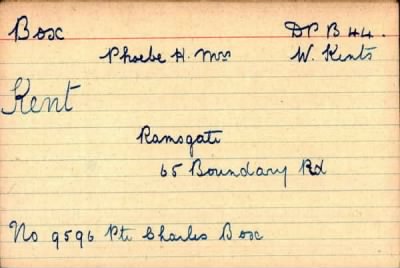 Box DP B 44.
Phoebe H. Mrs W. Kents
Kent
Ramsgate
65 Boundary Rd
No 9596 Pte Charles Box